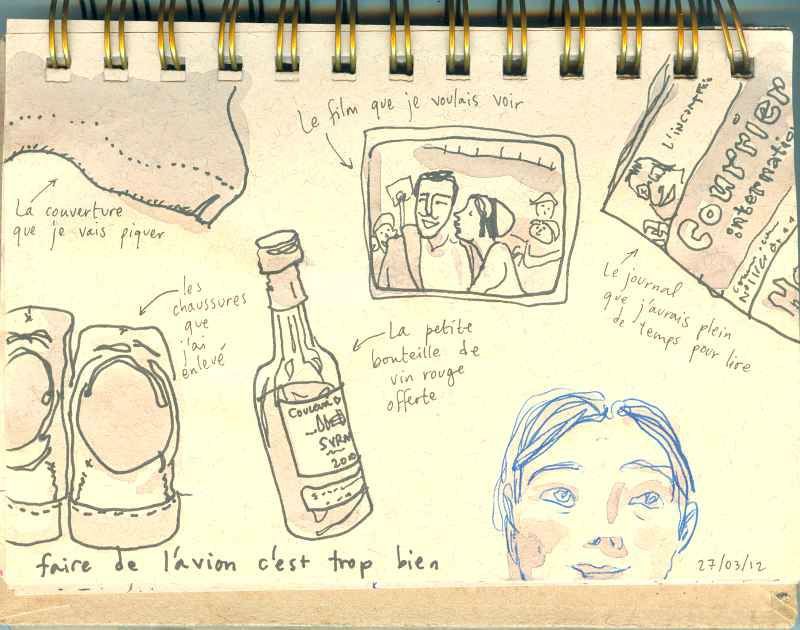 Le film que je voulais voir
La couverture
que je vais piquer
L'INCOMPRIS
Courrier
internatio
Le journal
que j'aurais plein
de temps pour lire
les
chaussures
que
j'ai
enlevé
La petite
bouteille de
vin rouge
offerte
COULEUR D
SYRA
faire de l'avion c'est trop bien
27/03/12